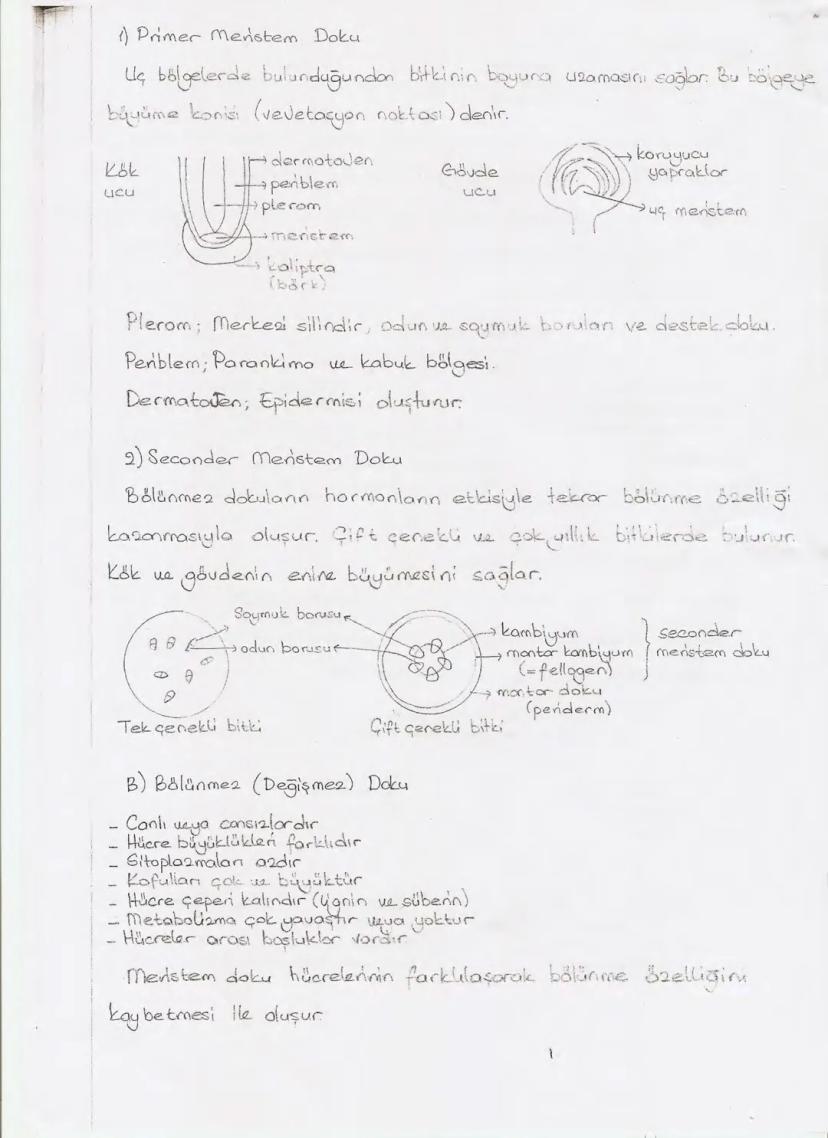 1) Primer Meristem Doku
Uç bölgelerde bulunduğundan bitkinin boyuna uzamasını sağlar. Bu bölgeye
büyüme konisi (vejetasyon noktası) denir.
Kök
ucu
dermatojen
periblem
plerom
meristem
kaliptra
(börk)
Gövde
ucu
koruyucu
yapraklar
uç meristem
Plerom; Merkezi silindir, odun ve soymuk boruları ve destek doku.
Periblem; Parankima ve kabuk bölgesi.
Dermatojen; Epidermisi oluşturur.
2) Seconder Meristem Doku
Bölünmez dokuların hormonların etkisiyle tekrar bölünme özelliği
kazanmasıyla oluşur. Çift çenekli ve çok yıllık bitkilerde bulunur.
Kök ve gövdenin enine büyümesini sağlar.
Soymuk borusu
odun borusu
Tek çenekli bitki
kambiyum
mantar kambiyum
(=fellogen)
mantar doku
(periderm)
seconder
meristem doku
Çift çenekli bitki
B) Bölünmez (Değişmez) Doku
- Canlı veya cansızlardır
- Hücre büyüklükleri farklıdır
- Sitoplazmaları azdır
- Kofulları çok ve büyüktür
- Hücre çeperi kalındır (Lignin ve süberin)
- Metabolizma çok yavaştır veya yoktur
- Hücreler arası boşluklar vardır
Meristem doku hücrelerinin farklılaşarak bölünme özelliğini
kaybetmesi ile oluşur
1